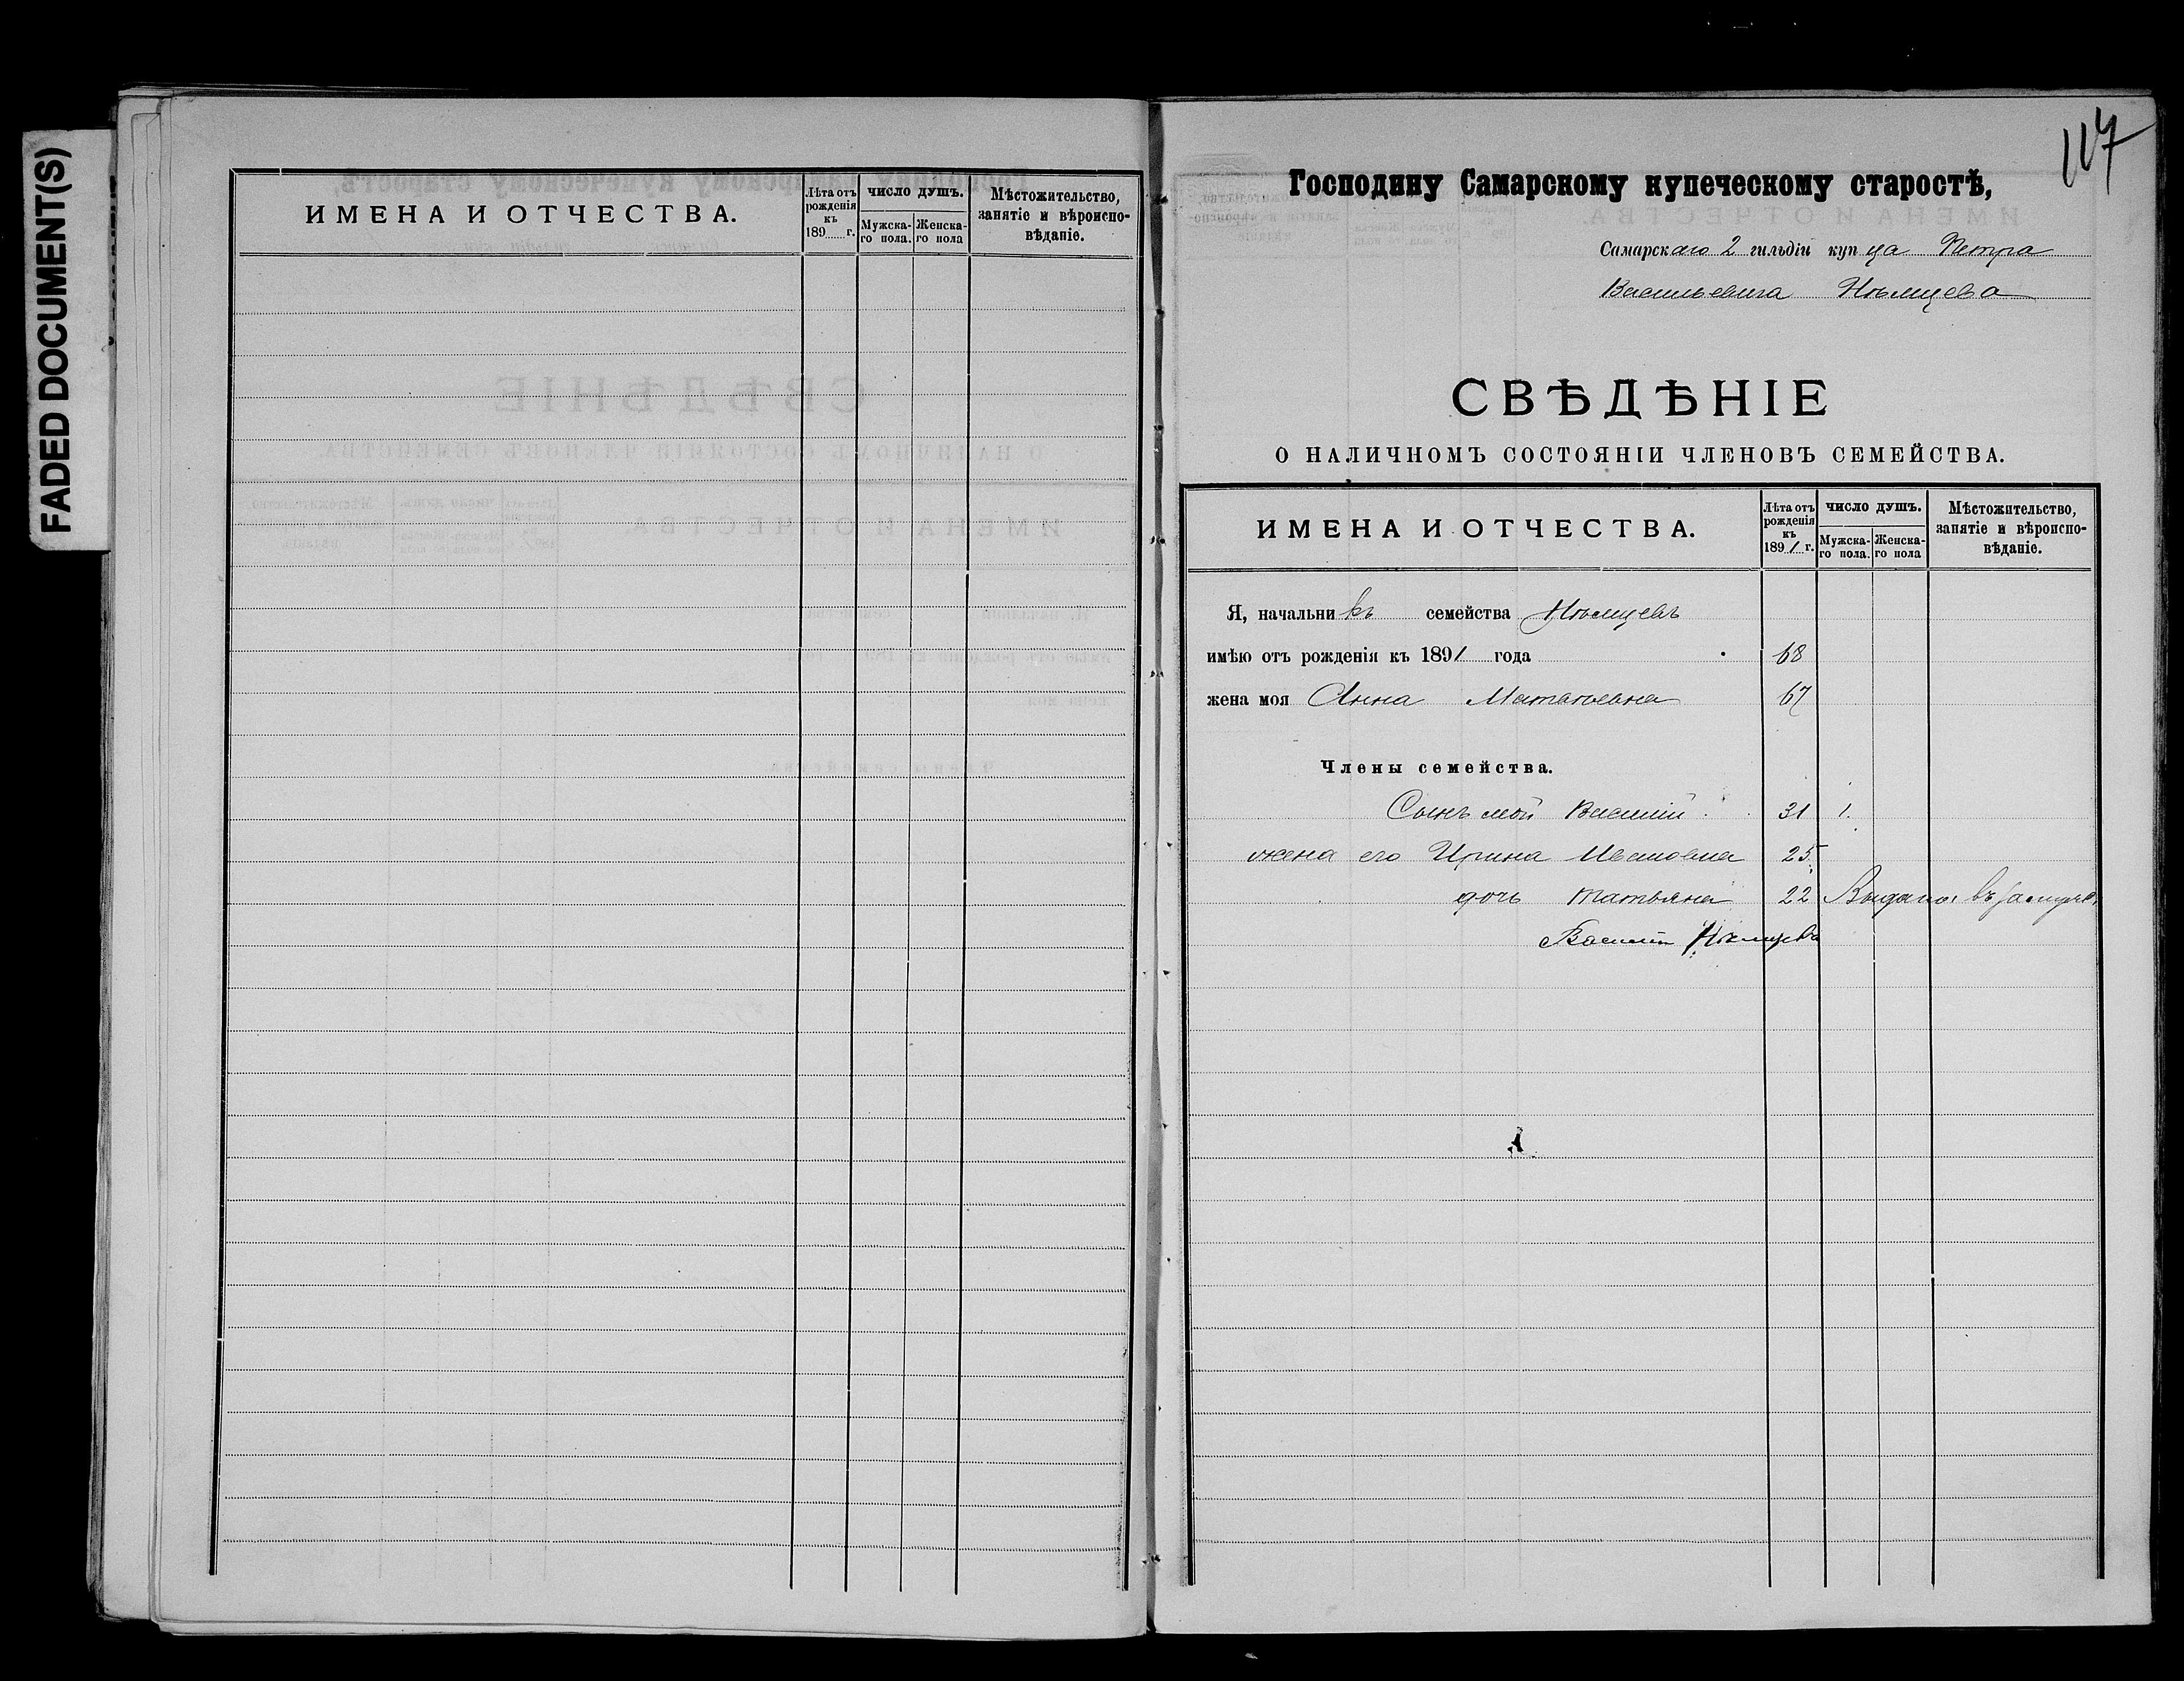 FADED DOCUMENT(S)
ИМЕНА И ОТЧЕСТВА.
Лѣта отъ рожденія къ 189 г.
ЧИСЛО ДУШЪ.
Мужска-го пола.
Женска-го пола
Мѣстожительство, занятіе и вѣроиспо-вѣданіе.
117
Господину Самарскому купеческому старостѣ,
Самарскаго 2 гильдіи купца Петра
Васильевича Нѣмцева
СВѢДѢНІЕ
О НАЛИЧНОМЪ СОСТОЯНІИ ЧЛЕНОВЪ СЕМЕЙСТВА.
ИМЕНА И ОТЧЕСТВА.
Лѣта отъ рожденія къ 1891 г.
ЧИСЛО ДУШЪ.
Мужска-го пола.
Женска-го пола
Мѣстожительство, занятіе и вѣроиспо-вѣданіе.
Я, начальникъ семейства Нѣмцевъ
имѣю отъ рожденія къ 1891 года 68
жена моя Анна Матвѣевна 67
Члены семейства.
Сынъ мой Василій 31 1.
жена его Ирина Ивановна 25
дочь Татьяна 22 Выдана въ замуж.
Василій Нѣмцевъ